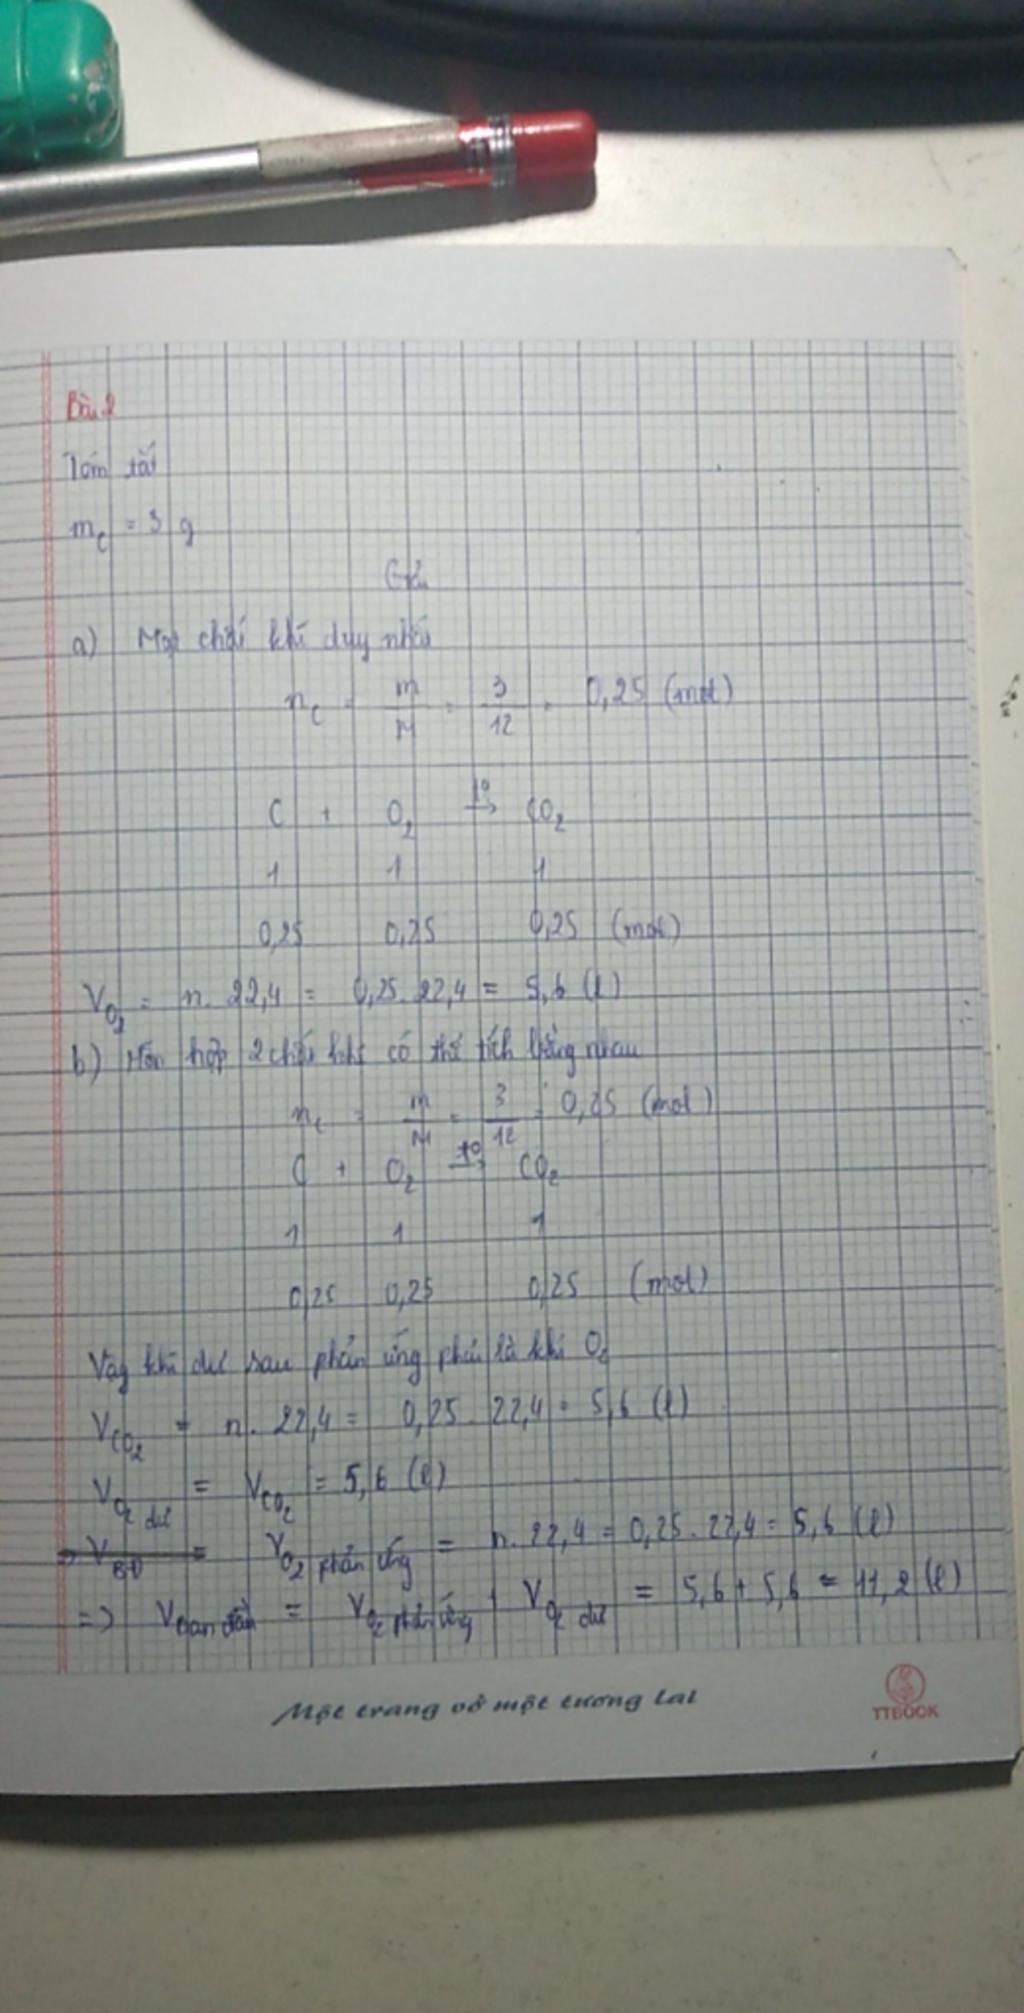 Bài 2
Tóm tắt
mC = 3 g
Giải
a) Một chất khí duy nhất
nC = m/M = 3/12 = 0,25 (mol)
C + O2 t°→ CO2
1 1 1
0,25 0,25 0,25 (mol)
VO2 = n. 22,4 = 0,25. 22,4 = 5,6 (l)
b) Hỗn hợp 2 chất khí có thể tích bằng nhau
nC = m/M = 3/12 = 0,25 (mol)
C + O2 t°→ CO2
1 1 1
0,25 0,25 0,25 (mol)
Vậy khí dư sau phản ứng phải là khí O2
VCO2 = n. 22,4 = 0,25. 22,4 = 5,6 (l)
VO2 dư = VCO2 = 5,6 (l)
=> VBĐ = VO2 phản ứng = n. 22,4 = 0,25. 22,4 = 5,6 (l)
=> Vban đầu = VO2 phản ứng + VO2 dư = 5,6 + 5,6 = 11,2 (l)
Một trang vở một tương lai
TTBOOK